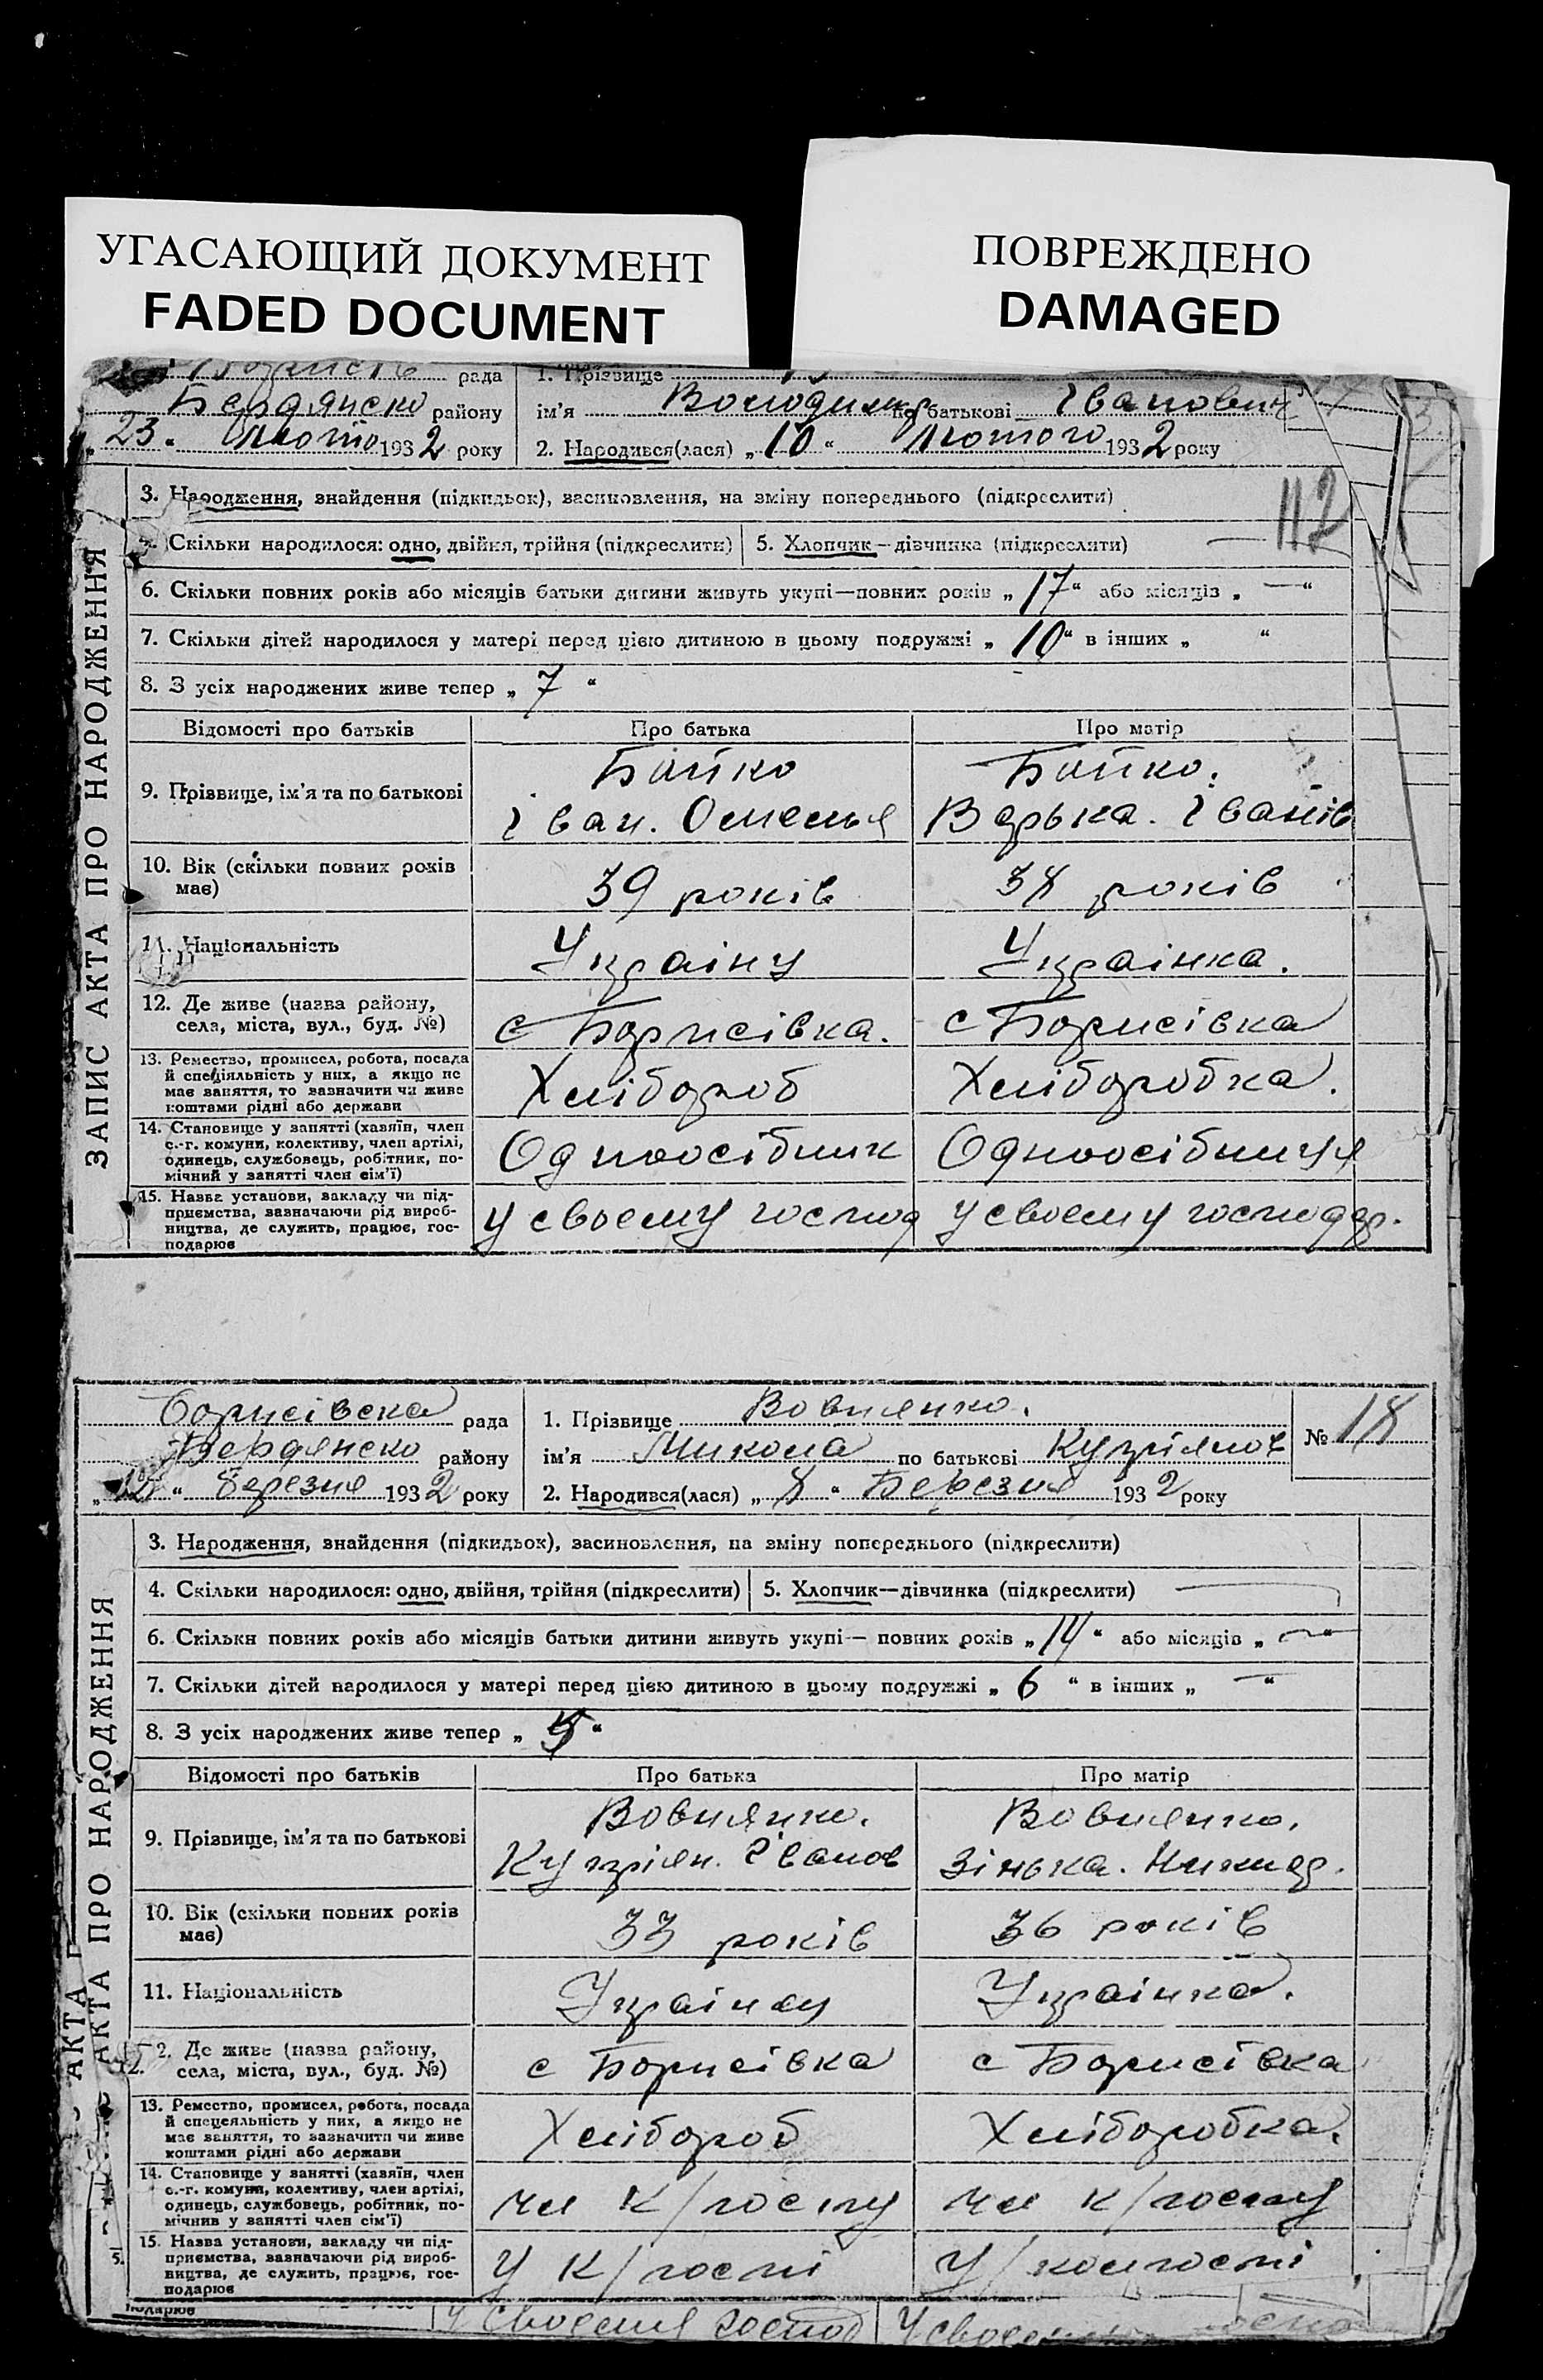 УГАСАЮЩИЙ ДОКУМЕНТ
FADED DOCUMENT
ПОВРЕЖДЕНО
DAMAGED
рада
1. Прізвище
Бердянско району
ім'я Володимир по батькові Іванович
„23“ Лютого 1932 року
2. Народився(лася) „10“ Лютого 1932 року
112
ЗАПИС АКТА ПРО НАРОДЖЕННЯ
3. Народження, знайдення (підкидьок), засиновлення, на зміну попереднього (підкреслити)
4. Скільки народилося: одно, двійня, трійня (підкреслити)
5. Хлопчик—дівчинка (підкреслити)
6. Скільки повних років або місяців батьки дитини живуть укупі—повних років „17“ або місяців „—“
7. Скільки дітей народилося у матері перед цією дитиною в цьому подружжі „10“ в інших „ “
8. З усіх народжених живе тепер „7“
Відомості про батьків
Про батька
Про матір
9. Прізвище, ім'я та по батькові
Бойко
Іван. Омелья
Бойко.
Варька. Іванів
10. Вік (скільки повних років
має)
39 років
38 років
11. Національність
Українц
Українка.
12. Де живе (назва району,
села, міста, вул., буд. №)
с Борисівка.
с Борисівка
13. Ремество, промисел, робота, посада
й спеціяльність у них, а якщо не
має заняття, то зазначити чи живе
коштами рідні або держави
Хлібороб
Хліборобка.
14. Становище у занятті (хазяїн, член
с.-г. комуни, колективу, член артілі,
одинець, службовець, робітник, по-
мічний у занятті член сім'ї)
Одноосібник
Одноосібниця
15. Назва установи, закладу чи під-
приємства, зазначаючи рід вироб-
ництва, де служить, працює, гос-
подарює
у своему господ
у своему господар.
Борисівска рада
1. Прізвище Вовнянко.
№ 18
Бердянско району
ім'я Микола по батькові Кузріянов
„12“ березня 1932 року
2. Народився(лася) „8“ Березня 1932 року
ЗАПИС АКТА ПРО НАРОДЖЕННЯ
3. Народження, знайдення (підкидьок), засиновлення, на зміну попереднього (підкреслити)
4. Скільки народилося: одно, двійня, трійня (підкреслити)
5. Хлопчик—дівчинка (підкреслити)
6. Скільки повних років або місяців батьки дитини живуть укупі— повних років „14“ або місяців „—“
7. Скільки дітей народилося у матері перед цією дитиною в цьому подружжі „6“ в інших „—“
8. З усіх народжених живе тепер „5“
Відомості про батьків
Про батька
Про матір
9. Прізвище, ім'я та по батькові
Вовнянко.
Кузріян. Іванов
Вовнянко.
Зінька.
10. Вік (скільки повних років
має)
33 років
36 років
11. Національність
Українец
Українка.
12. Де живе (назва району,
села, міста, вул., буд. №)
с Борисівка
с Борисівка
13. Ремество, промисел, робота, посада
й спецеяльність у них, а якщо не
має заняття, то зазначити чи живе
коштами рідні або держави
Хлібороб
Хліборобка.
14. Становище у занятті (хазяїн, член
с.-г. комуни, колективу, член артілі,
одинець, службовець, робітник, по-
мічнив у занятті член сім'ї)
чл к/госпу
чл к/госпу
15. Назва установи, закладу чи під-
приємства, зазначаючи рід вироб-
ництва, де служить, працює, гос-
подарює
у к/госпі
у/колгоспі
подарює
у своєму господ